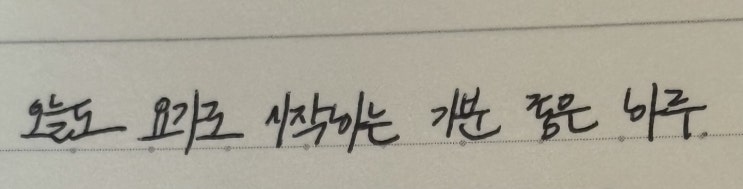 오늘도 요가로 시작하는 기분 좋은 하루.